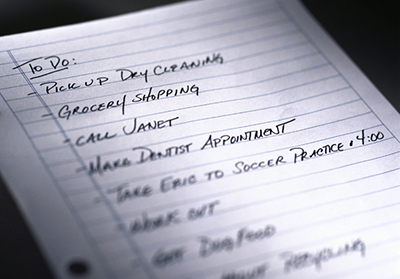 To Do:
- Pick up Dry Cleaning
- Grocery Shopping
- Call Janet
- Make Dentist Appointment
- Take Eric to Soccer Practice • 4:00
- Work out
- Get Dog Food
Recycling